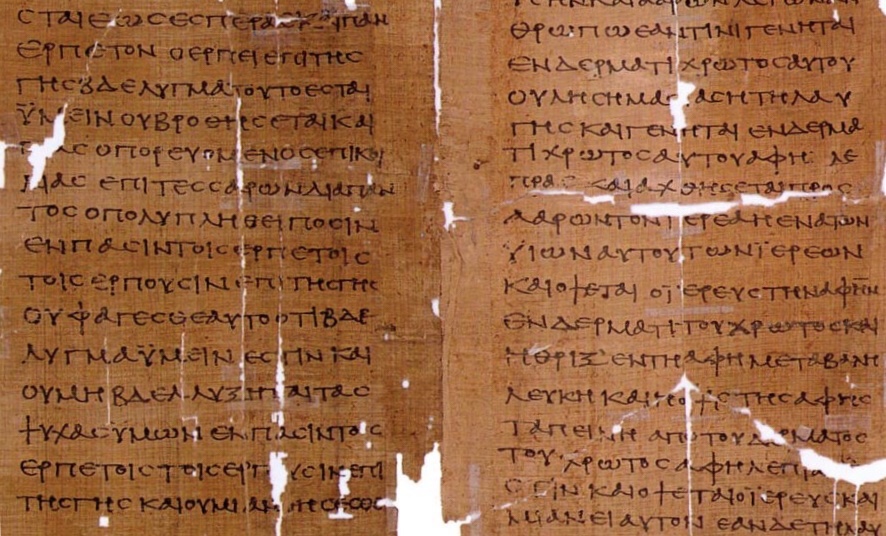 ϹΤΑΙ ΕΩϹ ΕϹΠΕΡΑϹ ΚΑΙ ΠΑΝ
ΕΡΠΕΤΟΝ Ο ΕΡΠΕΙ ΕΠΙ ΤΗϹ
ΓΗϹ ΒΔΕΛΥΓΜΑ ΤΟΥΤΟ ΕϹΤΑΙ
ΫΜΕΙΝ ΟΥ ΒΡΩΘΗϹΕΤΑΙ ΚΑΙ
ΠΑϹ Ο ΠΟΡΕΥΟΜΕΝΟϹ ΕΠΙ ΚΟΙ
ΛΙΑϹ ΕΠΙ ΤΕϹϹΑΡΩΝ ΔΙΑ ΠΑΝ
ΤΟϹ Ο ΠΟΛΥΠΛΗΘΕΙ ΠΟϹΙΝ
ΕΝ ΠΑϹΙΝ ΤΟΙϹ ΕΡΠΕΤΟΙϹ
ΤΟΙϹ ΕΡΠΟΥϹΙΝ ΕΠΙ ΤΗϹ ΓΗϹ
ΟΥ ΦΑΓΕϹΘΕ ΑΥΤΟ ΟΤΙ ΒΔΕ
ΛΥΓΜΑ ΫΜΕΙΝ ΕϹΤΙΝ ΚΑΙ
ΟΥ ΜΗ ΒΔΕΛΛΥΞΗΤΑΙ ΤΑϹ
ΨΥΧΑϹ ΥΜΩΝ ΕΝ ΠΑϹΙΝ ΤΟΙϹ
ΕΡΠΕΤΟΙϹ ΤΟΙϹ ΕΡΠΟΥϹΙΝ ΕΠΙ
ΤΗϹ ΓΗϹ ΚΑΙ ΟΥ
ΘΡΩΠΩ ΕΑΝ ΤΙΝΙ ΓΕΝΗΤΑΙ
ΕΝ ΔΕΡΜΑΤΙ ΧΡΩΤΟϹ ΑΥΤΟΥ
ΟΥΛΗ ϹΗΜΑϹΙΑϹ Η ΤΗΛΑΥ
ΓΗϹ ΚΑΙ ΓΕΝΗΤΑΙ ΕΝ ΔΕΡΜΑ
ΤΙ ΧΡΩΤΟϹ ΑΥΤΟΥ ΑΦΗ ΛΕ
ΠΡΑϹ ΚΑΙ ΑΧΘΗϹΕΤΑΙ ΠΡΟϹ
ΑΑΡΩΝ ΤΟΝ ΙΕΡΕΑ Η ΕΝΑ ΤΩΝ
ΥΙΩΝ ΑΥΤΟΥ ΤΩΝ ΪΕΡΕΩΝ
ΚΑΙ ΟΨΕΤΑΙ Ο ΪΕΡΕΥϹ ΤΗΝ ΑΦΗΝ
ΕΝ ΔΕΡΜΑΤΙ ΤΟΥ ΧΡΩΤΟϹ ΚΑΙ
Η ΘΡΙΞ ΕΝ ΤΗ ΑΦΗ ΜΕΤΑΒΑΛΗ
ΛΕΥΚΗ ΚΑΙ Η ΟΨΙϹ ΤΗϹ ΑΦΗϹ
ΤΑΠΕΙΝΗ ΑΠΟ ΤΟΥ ΔΕΡΜΑΤΟϹ
ΤΟΥ ΧΡΩΤΟϹ ΑΦΗ ΛΕΠΡΑϹ
ϹΤΙΝ ΚΑΙ ΟΨΕΤΑΙ Ο ΪΕΡΕΥϹ ΚΑΙ
ΜΙΑΝΕΙ ΑΥΤΟΝ ΕΑΝ ΔΕ ΤΗΛΑΥ